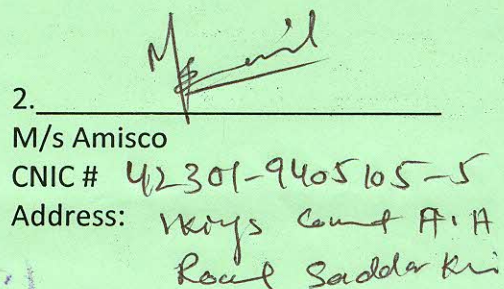 2.
M/s Amisco
CNIC # 42301-9405105-5
Address: Court
Road Saddar Khi